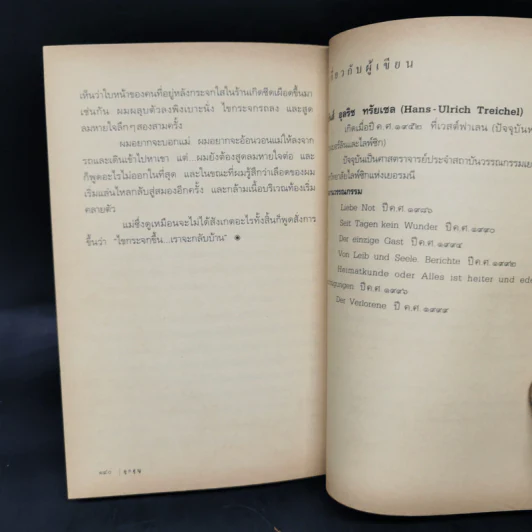 เห็นว่าใบหน้าของคนที่อยู่หลังกระจกใสในร้านเกิดซีดเผือดขึ้นมา
เช่นกัน ผมผลุบตัวลงพิงเบาะนั่ง ไขกระจกรถลง และสูด
ลมหายใจลึกๆสองสามครั้ง
ผมอยากจะบอกแม่ ผมอยากจะอ้อนวอนแม่ให้ลงจาก
รถและเดินเข้าไปหาเขา แต่...ผมยังต้องสูดลมหายใจต่อ และ
ก็พูดอะไรไม่ออกในที่สุด และในขณะที่ผมรู้สึกว่าเลือดของผม
เริ่มแล่นไหลกลับสู่สมองอีกครั้ง และกล้ามเนื้อบริเวณท้องเริ่ม
คลายตัว
แม่ซึ่งดูเหมือนจะไม่ได้สังเกตอะไรทั้งสิ้นก็พูดสั่งการ
ขึ้นว่า “ไขกระจกขึ้น...เราจะกลับบ้าน” ✷
กี่ยวกับผู้เขียน
อุลริช ทรัยเชล (Hans-Ulrich Treichel)
เกิดเมื่อปี ค.ศ. ๑๙๕๒ ที่เวสต์ฟาเลน (ปัจจุบัน
และไลพ์ซิก)
ปัจจุบันเป็นศาสตราจารย์ประจำสถาบันวรรณกรรม
ไลพ์ซิกแห่งเยอรมนี
วรรณกรรม
Liebe Not ปี ค.ศ. ๑๙๘๖
Seit Tagen kein Wunder ปี ค.ศ. ๑๙๙๐
Der einzige Gast ปี ค.ศ. ๑๙๙๔
Von Leib und Seele. Berichte ปี ค.ศ. ๑๙๙๒
Heimatkunde oder Alles ist heiter und ede
ungen ปี ค.ศ. ๑๙๙๖
Der Verlorene ปี ค.ศ. ๑๙๙๙